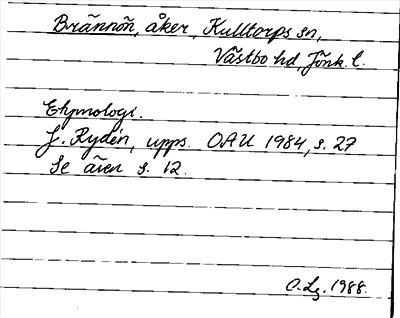 Brännön, åker, Kulltorps sn,
Västbo hd, Jönk. l.
Etymologi.
J. Rydén, upps. OAU 1984, s. 27
Se även s. 12.
O.Lg. 1988.